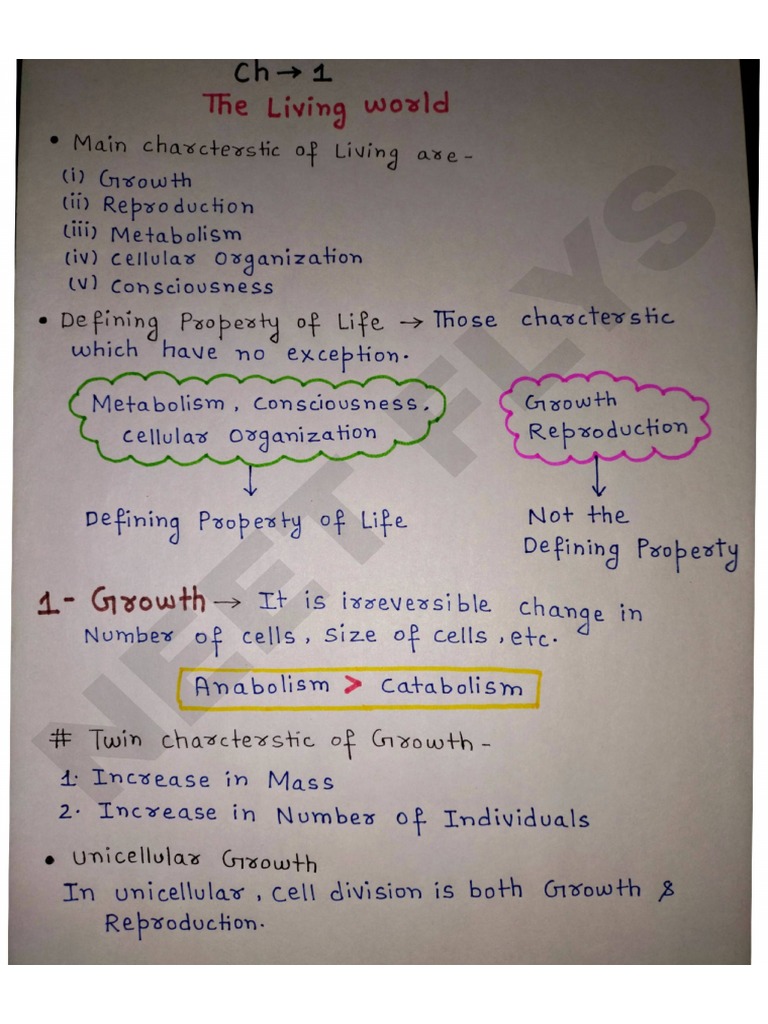 Ch → 1
The Living world
• Main charcterstic of Living are -
(i) Growth
(ii) Reproduction
(iii) Metabolism
(iv) Cellular Organization
(v) Consciousness
• Defining Property of Life → Those charcterstic
which have no exception.
Metabolism, Consciousness,
Cellular Organization
Growth
Reproduction
Defining Property of Life
Not the
Defining Property
1 - Growth → It is irreversible change in
Number of cells, size of cells, etc.
Anabolism > Catabolism
# Twin charcterstic of Growth -
1. Increase in Mass
2. Increase in Number of Individuals
• Unicellular Growth
In unicellular, Cell division is both Growth &
Reproduction.
NEET FLYS